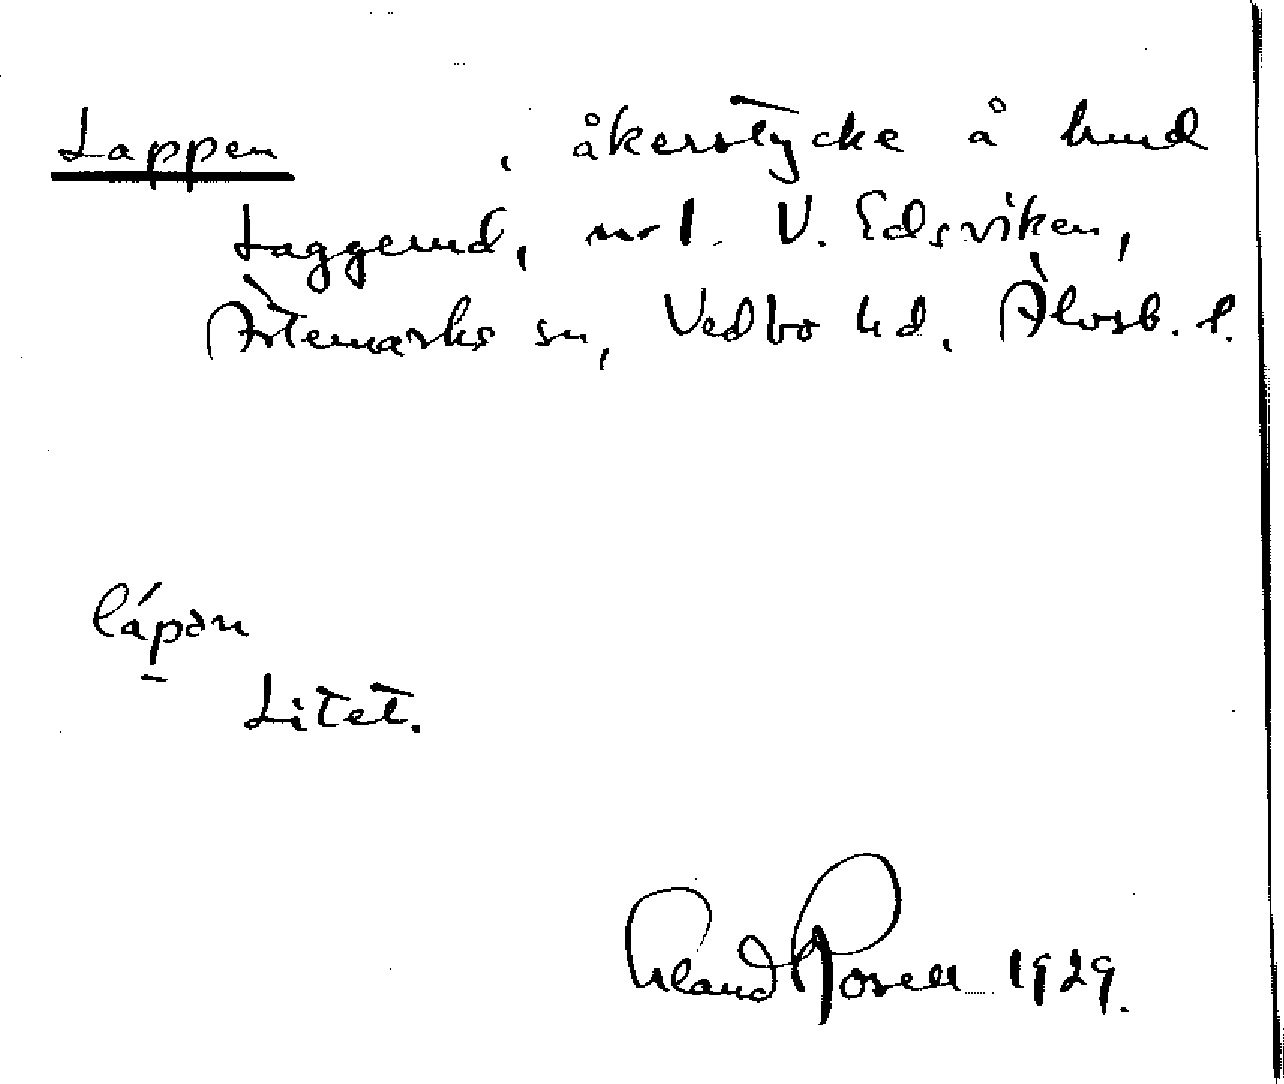 Lappen , åkerstycke å hmd
Laggerud, nr 1. V. Edsviken,
Ärtemarks sn, Vedbo hd, Älvsb. l.
lápən
Litet.
Erland Rosell 1929.